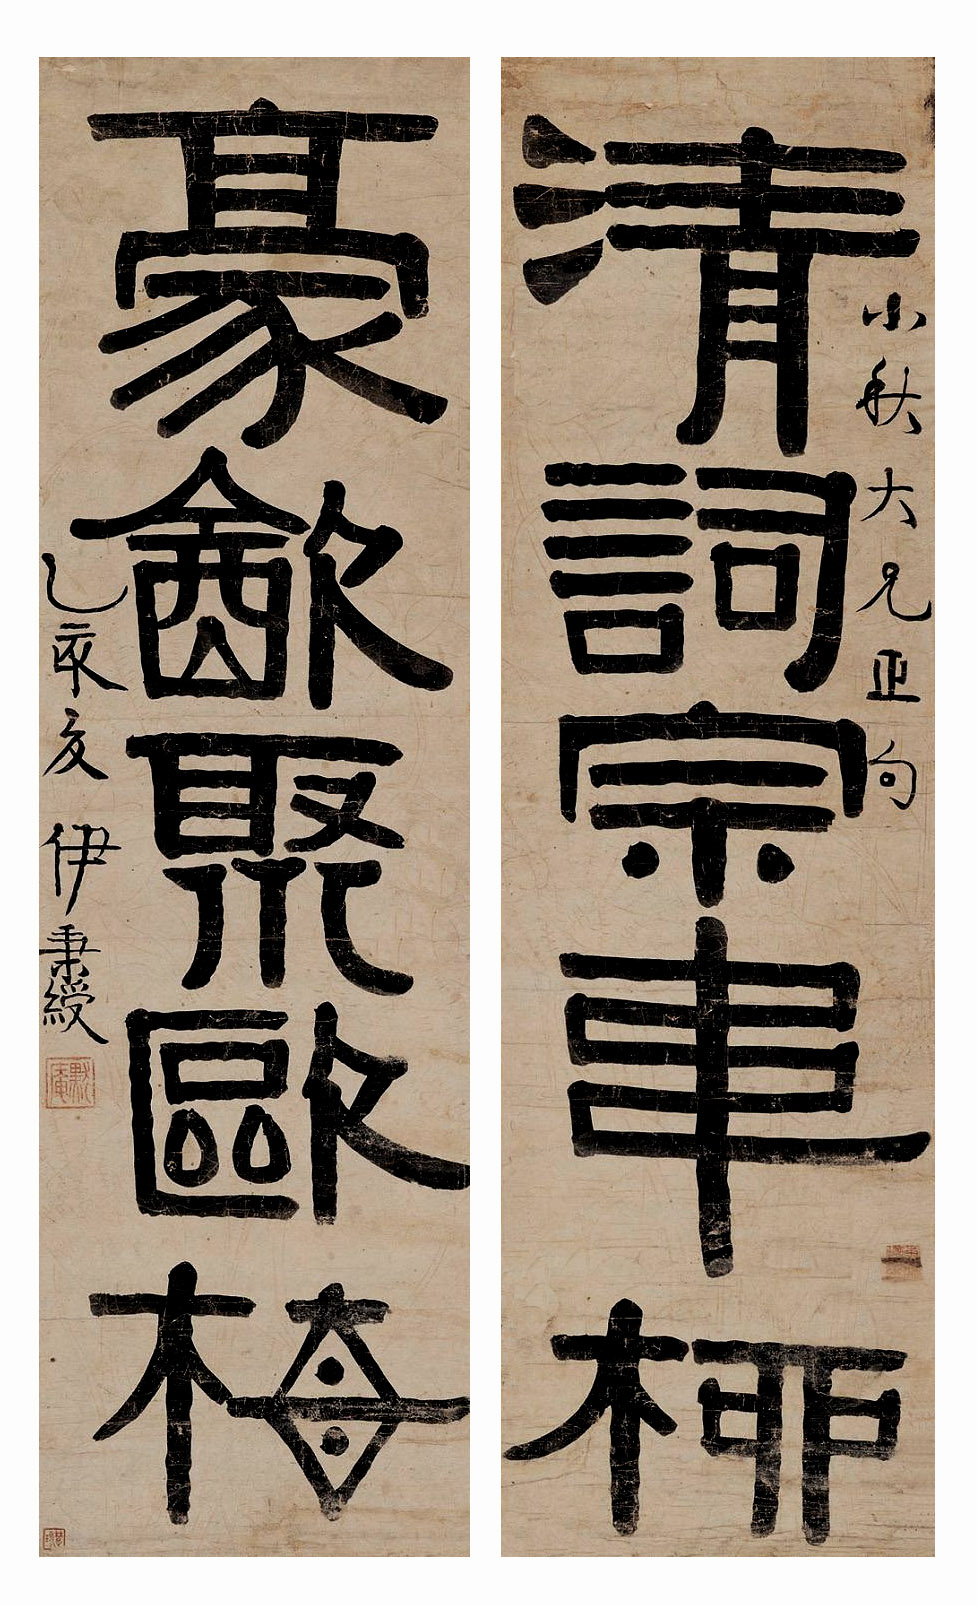 清詞宗韋柳
小秋大兄正句
豪飲聚歐梅
乙亥夏 伊秉綬
默庵